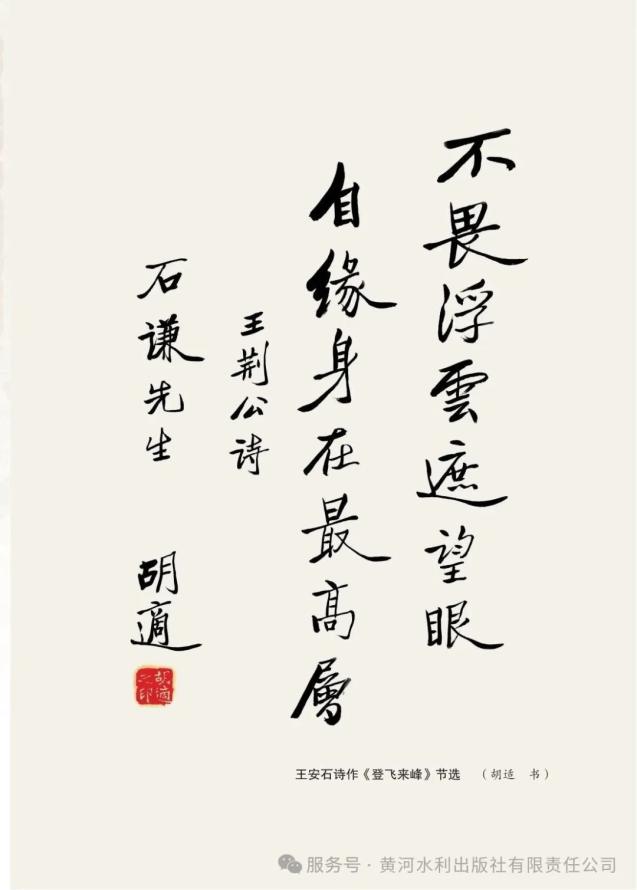 不畏浮雲遮望眼
自缘身在最高層
王荆公诗
石谦先生
胡適
胡適之印
王安石诗作《登飞来峰》节选 （胡适 书）
服务号·黄河水利出版社有限责任公司